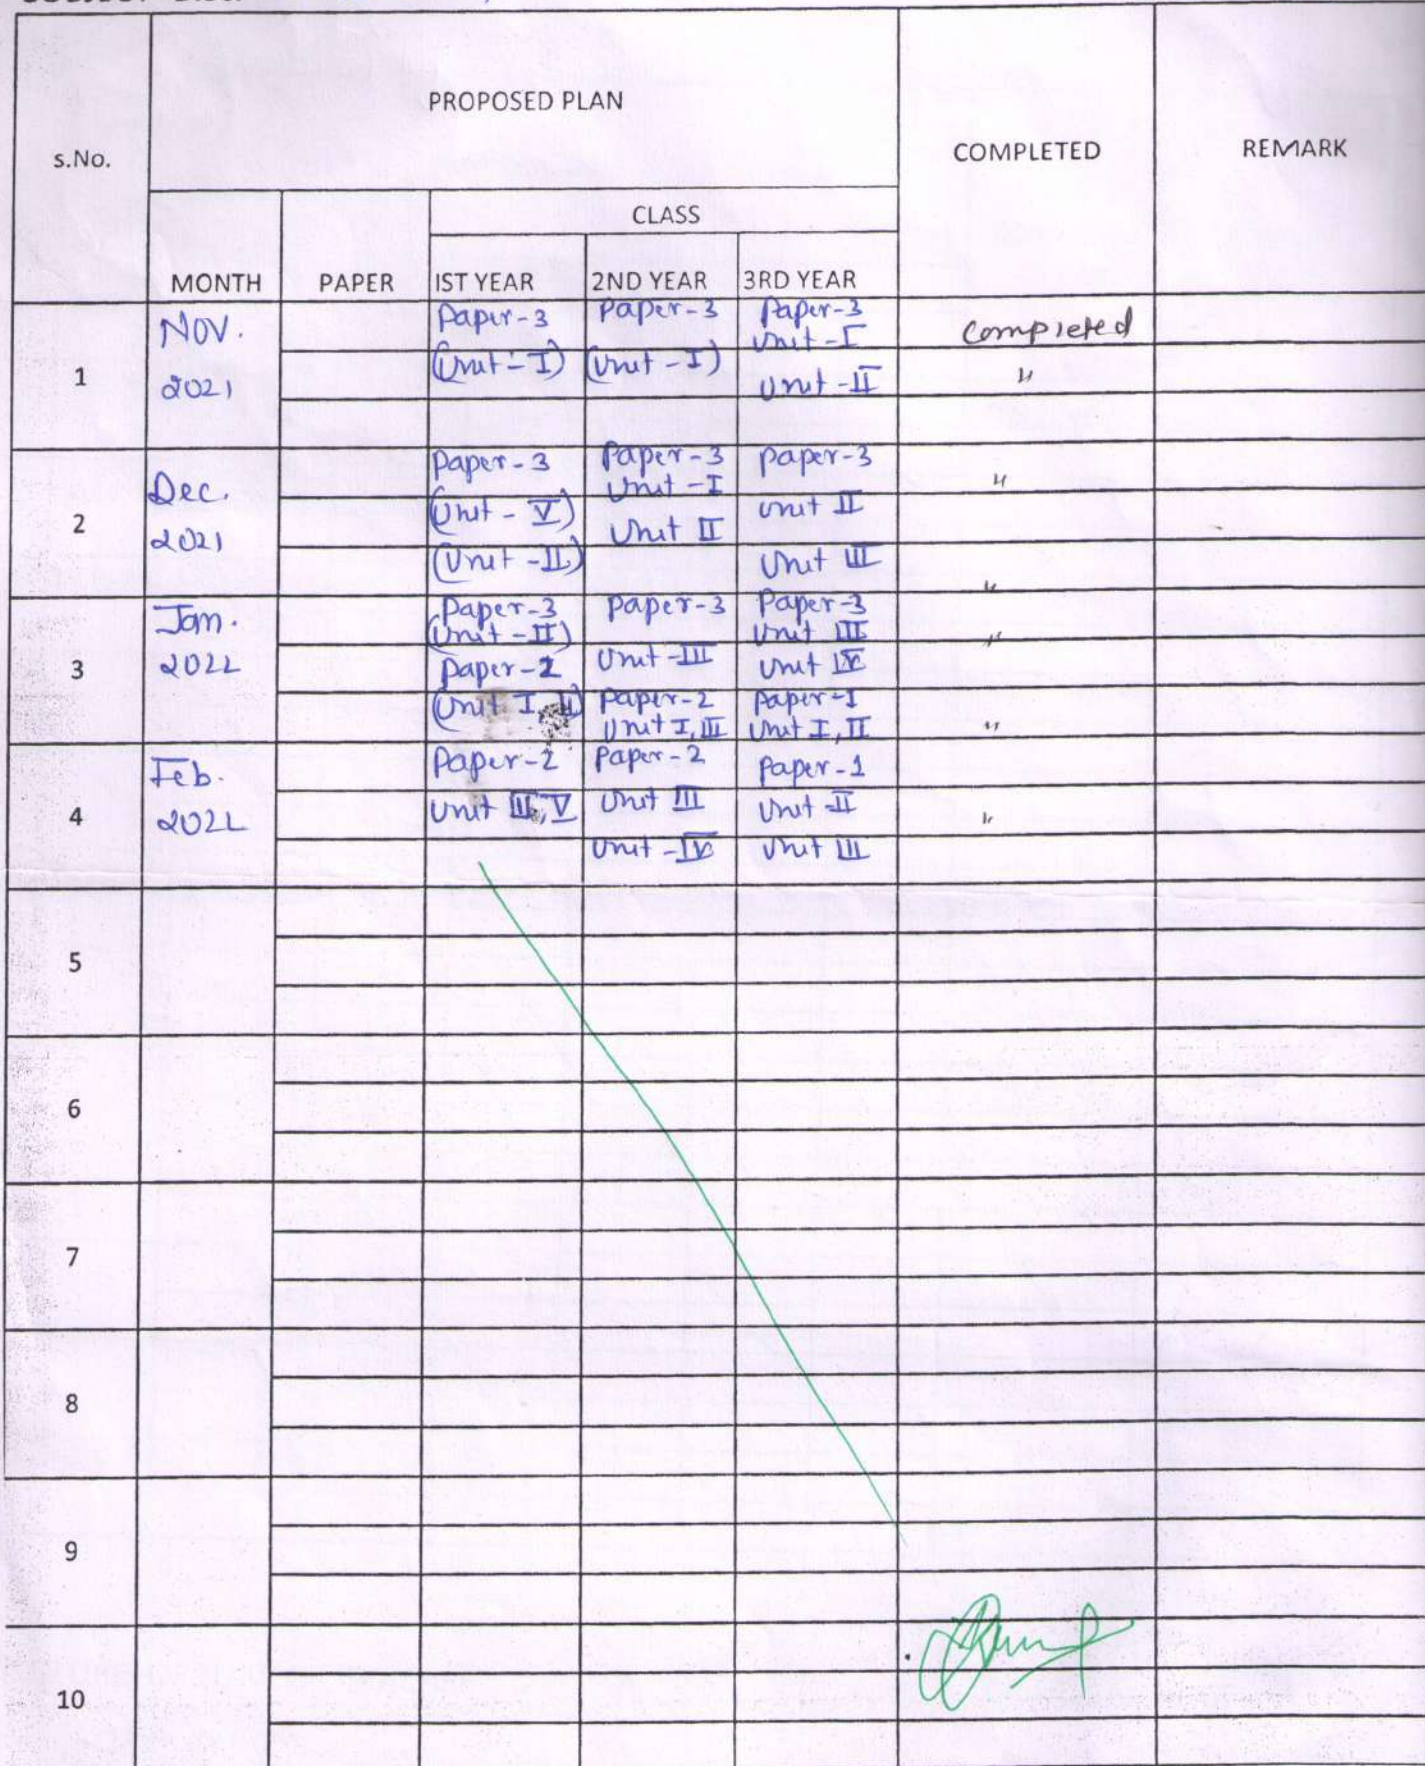 PROPOSED PLAN
s.No.
COMPLETED
REMARK
CLASS
MONTH PAPER IST YEAR 2ND YEAR 3RD YEAR
1
Nov.
2021
Paper-3
(Unit-I)
Paper-3
(Unit-I)
Paper-3
Unit-I
Unit-II
Completed
"
2
Dec.
2021
Paper-3
(Unit-V)
(Unit-II)
Paper-3
Unit-I
Unit II
Paper-3
Unit II
Unit III
"
"
3
Jan.
2022
Paper-3
(Unit-II)
Paper-2
(Unit I, II)
Paper-3
Unit-III
Paper-2
Unit I, III
Paper-3
Unit III
Unit IV
Paper-1
Unit I, II
"
"
4
Feb.
2022
Paper-2
Unit III, V
Paper-2
Unit III
Unit-IV
Paper-1
Unit-II
Unit III
"
5
6
7
8
9
10